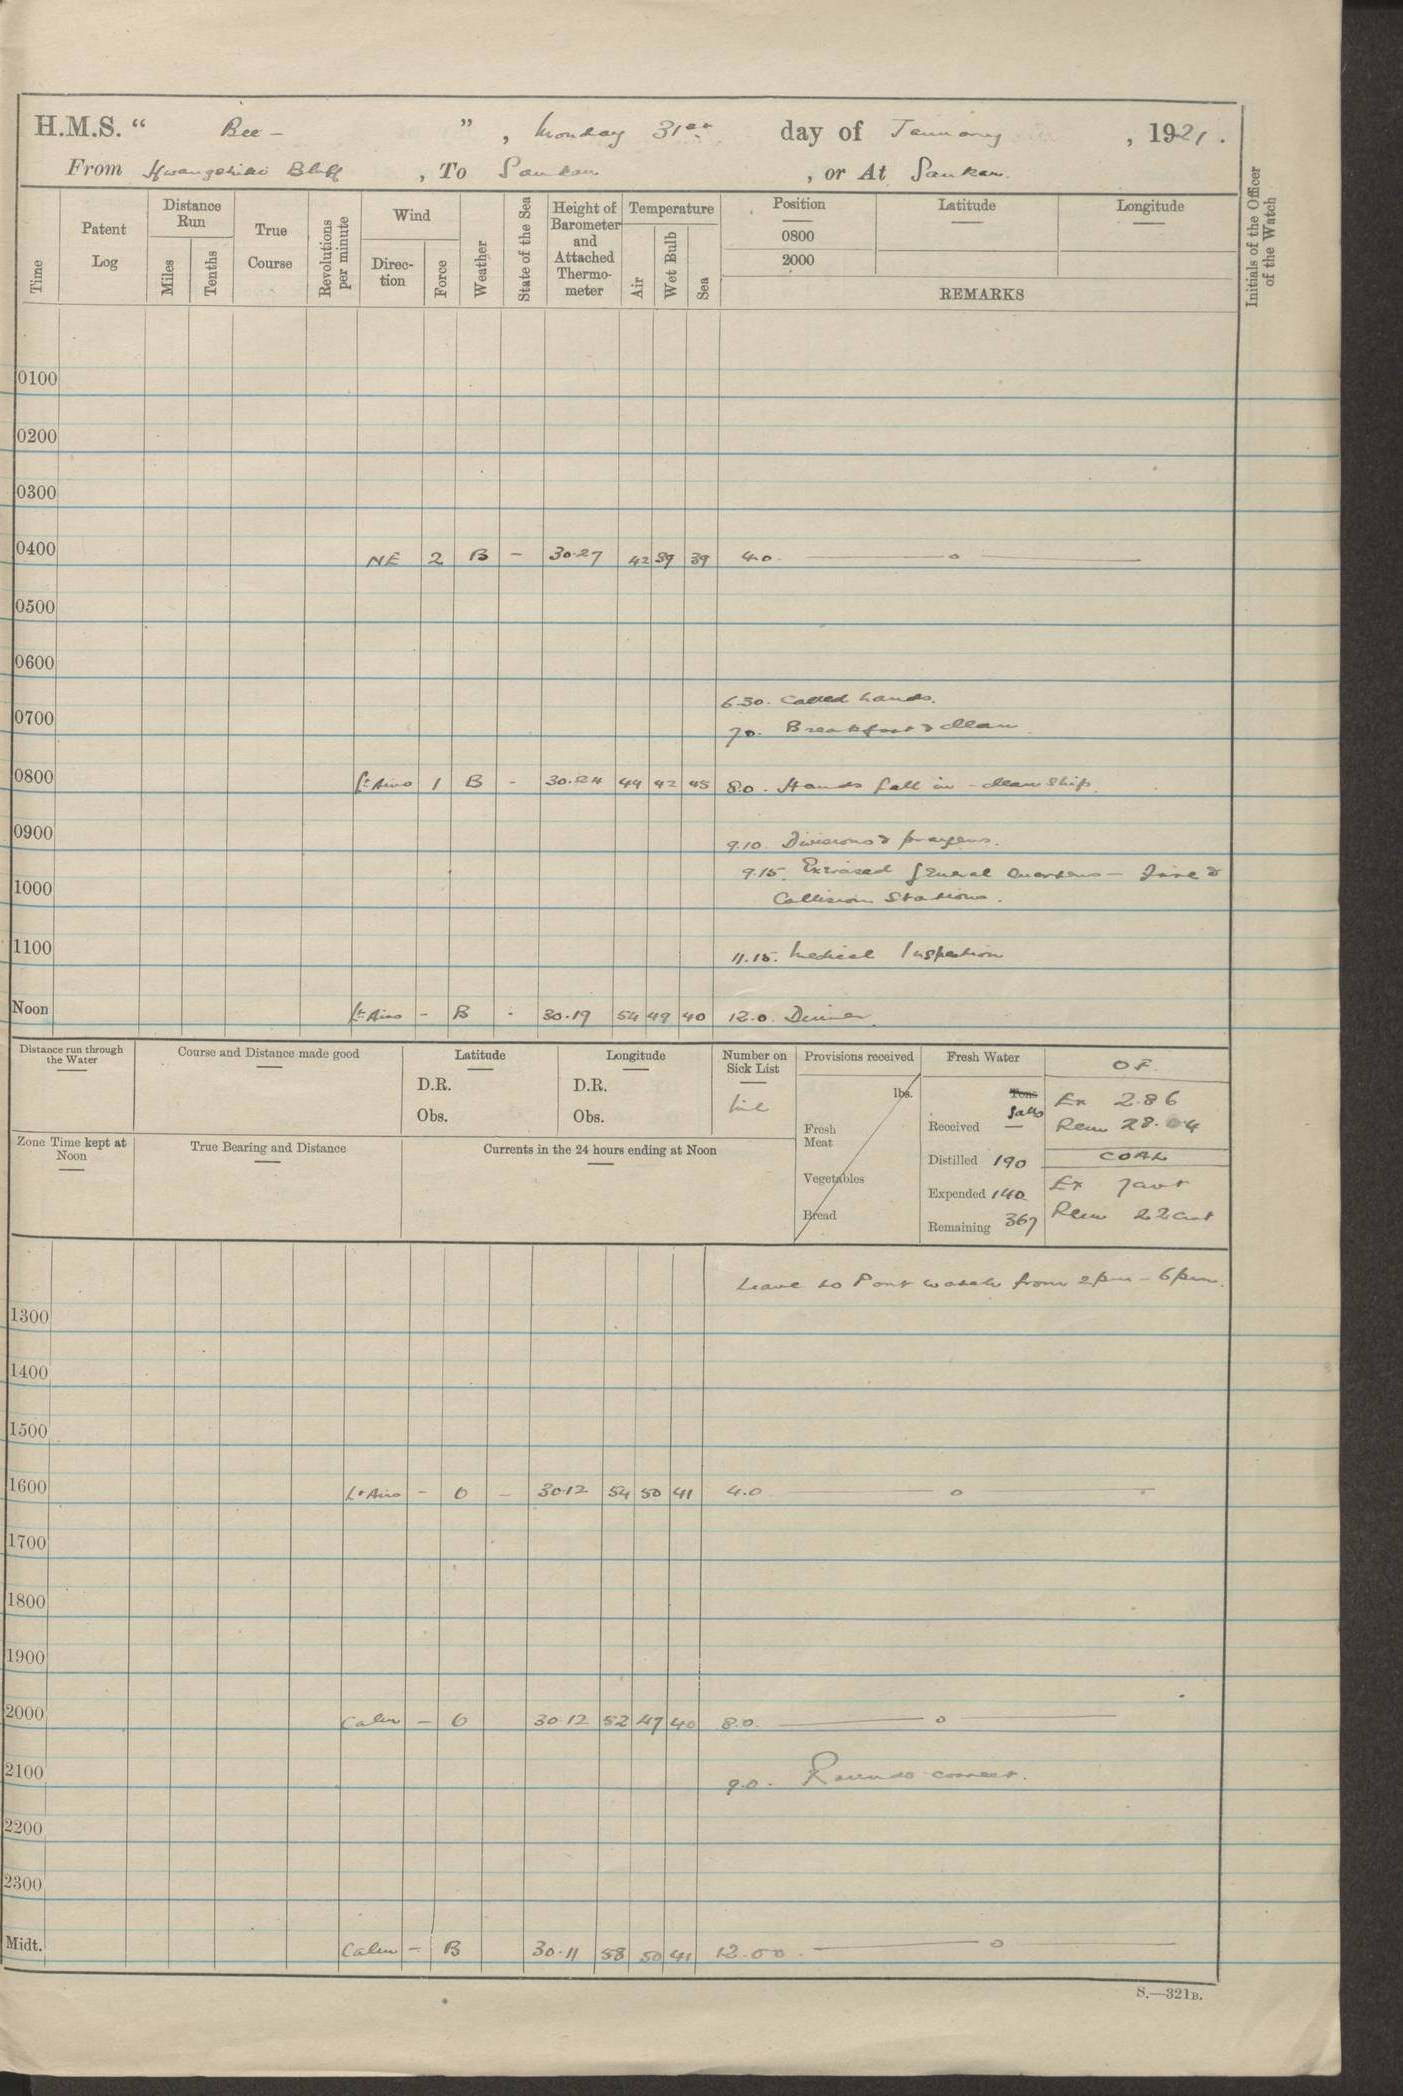 H.M.S. “ Bee - ” , Monday 31st day of January , 1921 .
From Bluff , To , or At
Time
Patent Log
Distance Run
Miles
Tenths
True Course
Revolutions per minute
Wind
Direc-tion
Force
Weather
State of the Sea
Height of Barometer and Attached Thermo-meter
Temperature
Air
Wet Bulb
Sea
Position
0800
2000
Latitude
Longitude
REMARKS
Initials of the Officer of the Watch
0100
0200
0300
0400 NE 2 B - 30.27 42 39 39 4.0. o
0500
0600
6.30. Called hands.
0700
7.0. Breakfast & clean
0800 Lt Airs 1 B - 30.24 44 42 45 8.0. Hands fall in - clean ship.
0900
9.10. Divisions & prayers.
9.15. Exercised general Quarters - Fire &
1000
Collision Stations.
1100
11.15. Medical Inspection
Noon Lt Airs - B - 30.19 54 49 40 12.0. Dinner.
Distance run through the Water
Course and Distance made good
Latitude
D.R.
Obs.
Longitude
D.R.
Obs.
Number on Sick List
Nil
Provisions received
lbs.
Fresh Meat
Vegetables
Bread
Fresh Water
Tons
galls
Received —
Distilled 190
Expended 140
Remaining 367
O F.
Ex 2.86
Rem 28.04
COAL
Ex 7 cwt
Rem 22 cwt
Zone Time kept at Noon
True Bearing and Distance
Currents in the 24 hours ending at Noon
Leave to Port watch from 2pm - 6pm.
1300
1400
1500
1600 Lt Airs - O - 30.12 54 50 41 4.0 o
1700
1800
1900
2000 Calm - O 30.12 52 47 40 8.0. o
2100
9.0. Rounds correct.
2200
2300
Midt. Calm - B 30.11 58 50 41 12.00. o
S.—321B.